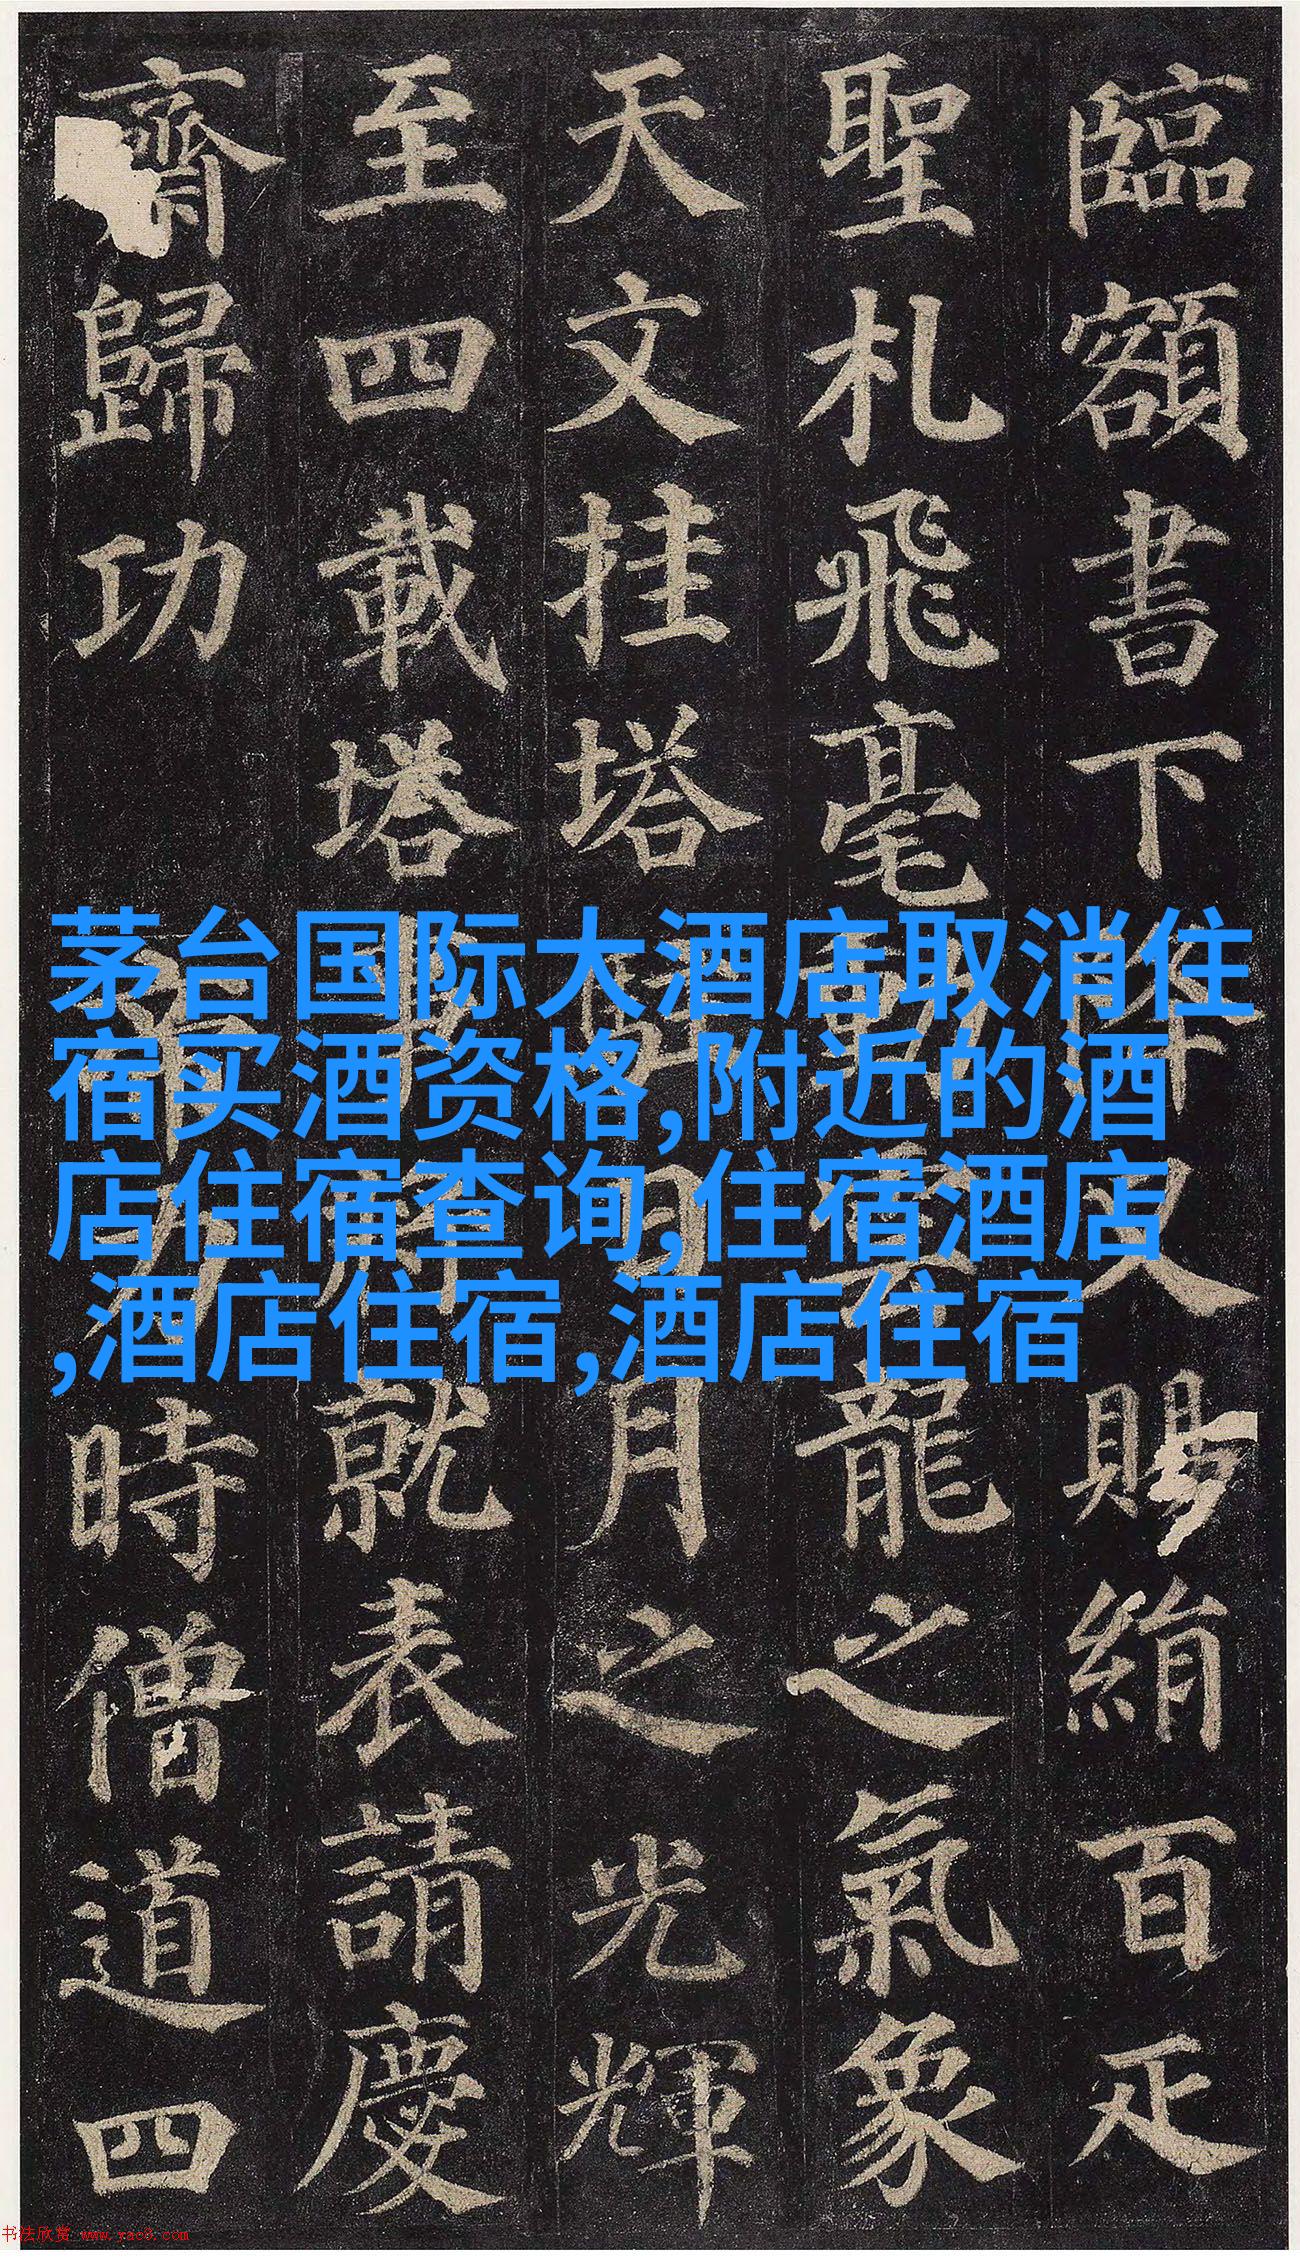 臨額書下降又賜絹百疋
聖札飛毫動雲龍之氣象
天文挂塔駐日月之光輝
至四載塔事將就表請慶
齋歸功帝力時僧道四
茅台国际大酒店取消住
宿买酒资格,附近的酒
店住宿查询,住宿酒店
,酒店住宿,酒店住宿
书法欣赏 www.yac8.com